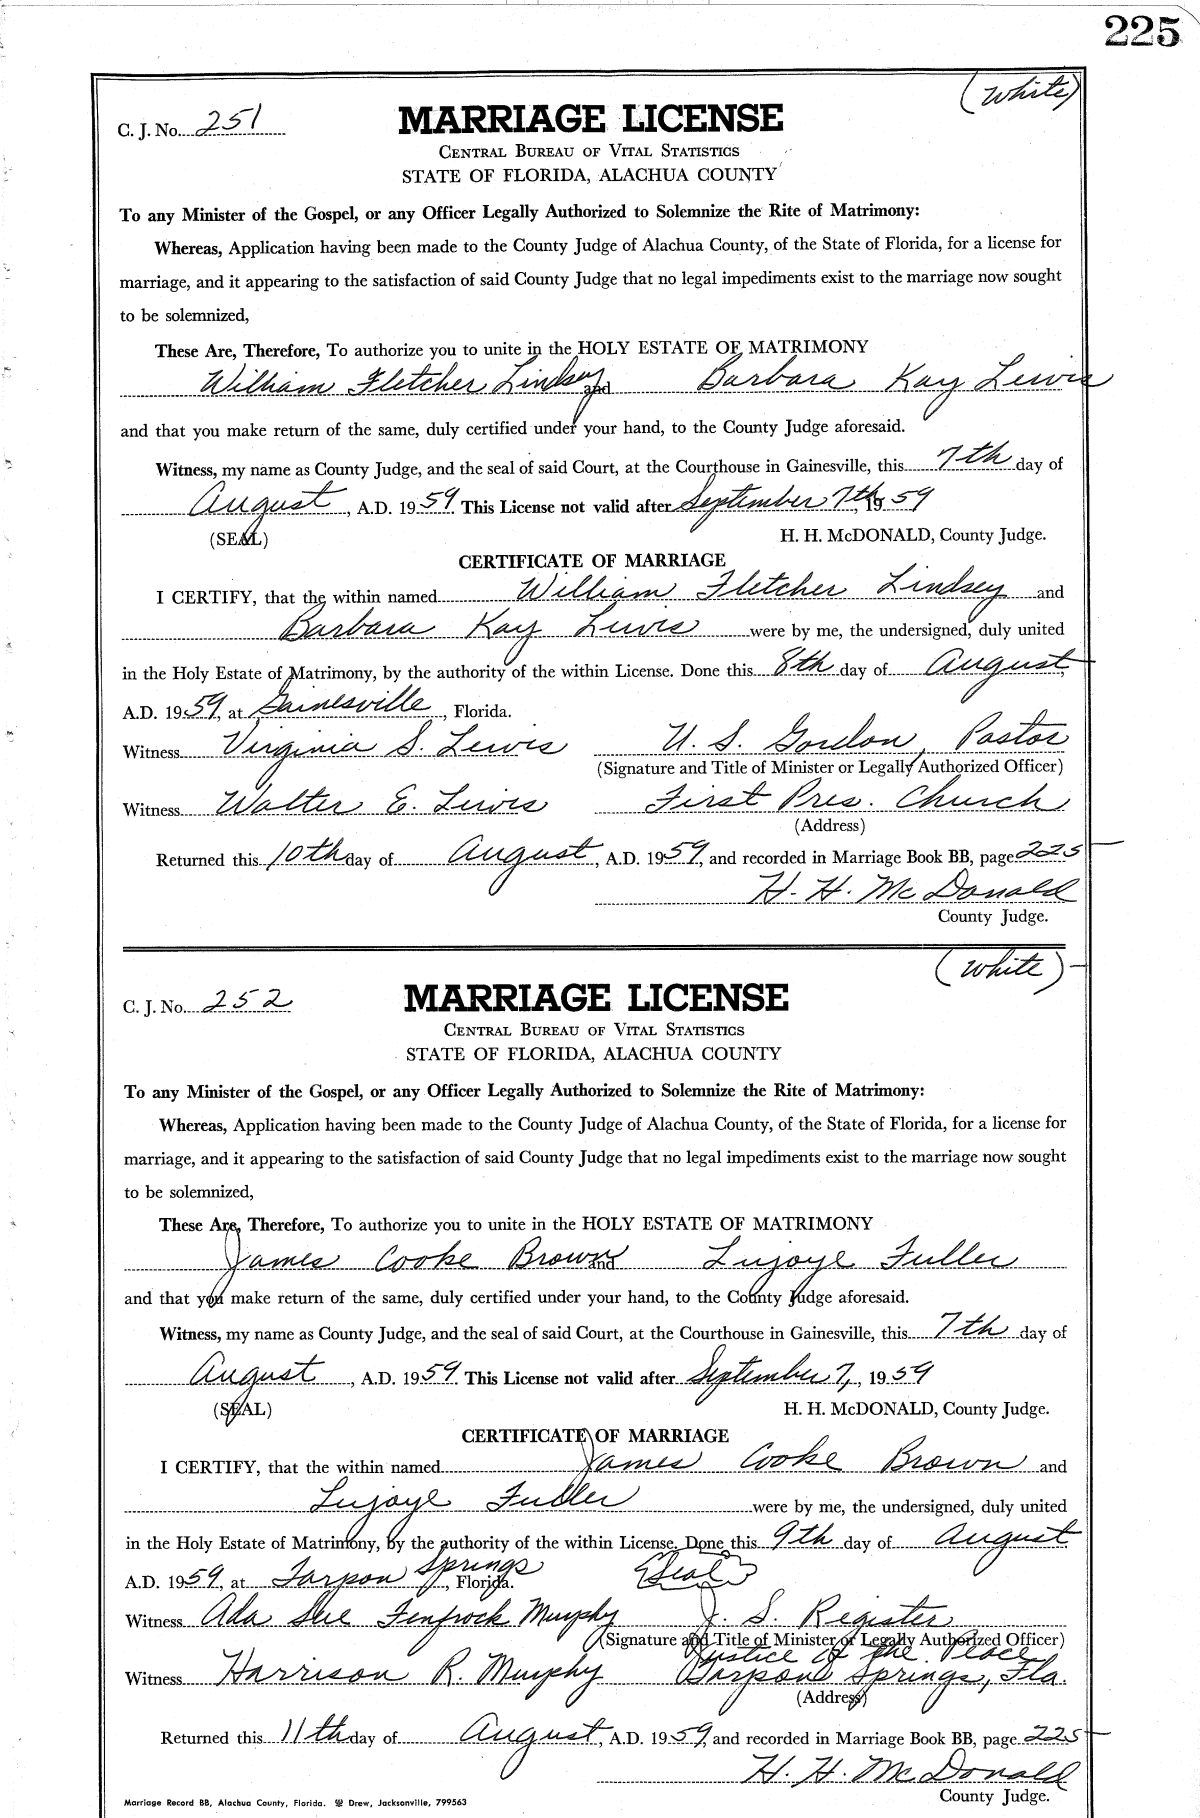 225
(White)
C. J. No. 251
MARRIAGE LICENSE
CENTRAL BUREAU OF VITAL STATISTICS
STATE OF FLORIDA, ALACHUA COUNTY
To any Minister of the Gospel, or any Officer Legally Authorized to Solemnize the Rite of Matrimony:
Whereas, Application having been made to the County Judge of Alachua County, of the State of Florida, for a license for
marriage, and it appearing to the satisfaction of said County Judge that no legal impediments exist to the marriage now sought
to be solemnized,
These Are, Therefore, To authorize you to unite in the HOLY ESTATE OF MATRIMONY
William Fletcher Lindsey and Barbara Kay Lewis
and that you make return of the same, duly certified under your hand, to the County Judge aforesaid.
Witness, my name as County Judge, and the seal of said Court, at the Courthouse in Gainesville, this 7th day of
August, A.D. 1959. This License not valid after September 7th, 1959
(SEAL) H. H. McDONALD, County Judge.
CERTIFICATE OF MARRIAGE
I CERTIFY, that the within named William Fletcher Lindsey and
Barbara Kay Lewis were by me, the undersigned, duly united
in the Holy Estate of Matrimony, by the authority of the within License. Done this 8th day of August,
A.D. 1959, at Gainesville, Florida.
Witness Virginia S. Lewis U. S. Gordon, Pastor
(Signature and Title of Minister or Legally Authorized Officer)
Witness Walter E. Lewis First Pres. Church
(Address)
Returned this 10th day of August, A.D. 1959, and recorded in Marriage Book BB, page 225
H. H. McDonald
County Judge.
(White)
C. J. No. 252
MARRIAGE LICENSE
CENTRAL BUREAU OF VITAL STATISTICS
STATE OF FLORIDA, ALACHUA COUNTY
To any Minister of the Gospel, or any Officer Legally Authorized to Solemnize the Rite of Matrimony:
Whereas, Application having been made to the County Judge of Alachua County, of the State of Florida, for a license for
marriage, and it appearing to the satisfaction of said County Judge that no legal impediments exist to the marriage now sought
to be solemnized,
These Are, Therefore, To authorize you to unite in the HOLY ESTATE OF MATRIMONY
James Cooke Brown and Lujoye Fuller
and that you make return of the same, duly certified under your hand, to the County Judge aforesaid.
Witness, my name as County Judge, and the seal of said Court, at the Courthouse in Gainesville, this 7th day of
August, A.D. 1959. This License not valid after September 7, 1959
(SEAL) H. H. McDONALD, County Judge.
CERTIFICATE OF MARRIAGE
I CERTIFY, that the within named James Cooke Brown and
Lujoye Fuller were by me, the undersigned, duly united
in the Holy Estate of Matrimony, by the authority of the within License. Done this 9th day of August
A.D. 1959, at Tarpon Springs, Florida. Seal
Witness Ada Sue Fenfrock Murphy J. S. Register
(Signature and Title of Minister or Legally Authorized Officer)
Justice of the Peace
Witness Harrison R. Murphy Tarpon Springs, Fla.
(Address)
Returned this 11th day of August, A.D. 1959, and recorded in Marriage Book BB, page 225
H. H. McDonald
County Judge.
Marriage Record BB, Alachua County, Florida. Drew, Jacksonville, 799563